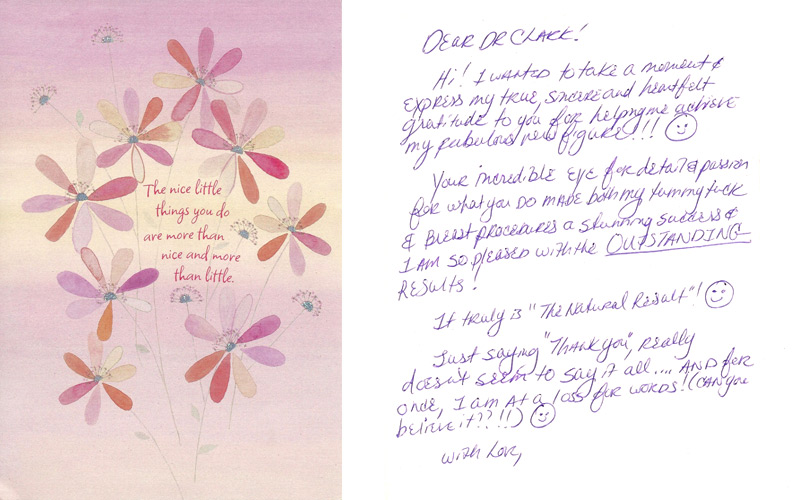 The nice little
things you do
are more than
nice and more
than little.
DEAR DR CLARK!
Hi! I WANTED to take a moment &
express my true, sincere and heartfelt
gratitude to you for helping me achieve
my fabulous new figure!!!
Your incredible eye for detail & passion
for what you do made both my tummy tuck
& Breast procedures a stunning success &
I AM so pleased with the OUTSTANDING
Results!
It truly is "The Natural Result"!
Just saying "Thank you", really
doesn't seem to say it all.... AND for
once, I am At a loss for words! (CAN you
believe it??!!)
with Love,